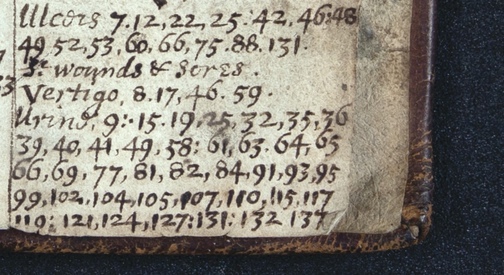 Ulcers 7.12,22,25.42,46:48
49,52,53,60,66,75.88.131.
Sr. wounds & Sores.
Vertigo, 8.17,46.59.
Urine, 9:15.19.25,32,35,36
39,40,41,49,58:61,63,64,65
66,69,77,81,82,84,91,93,95
99,102,104,105,107,110,115,117
119:121,124,127:131:132 137